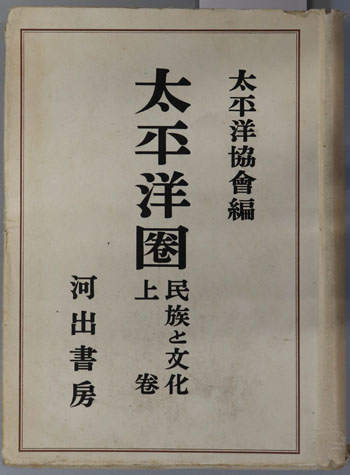 太平洋協會編
太平洋圏
民族と文化
上卷
河出書房